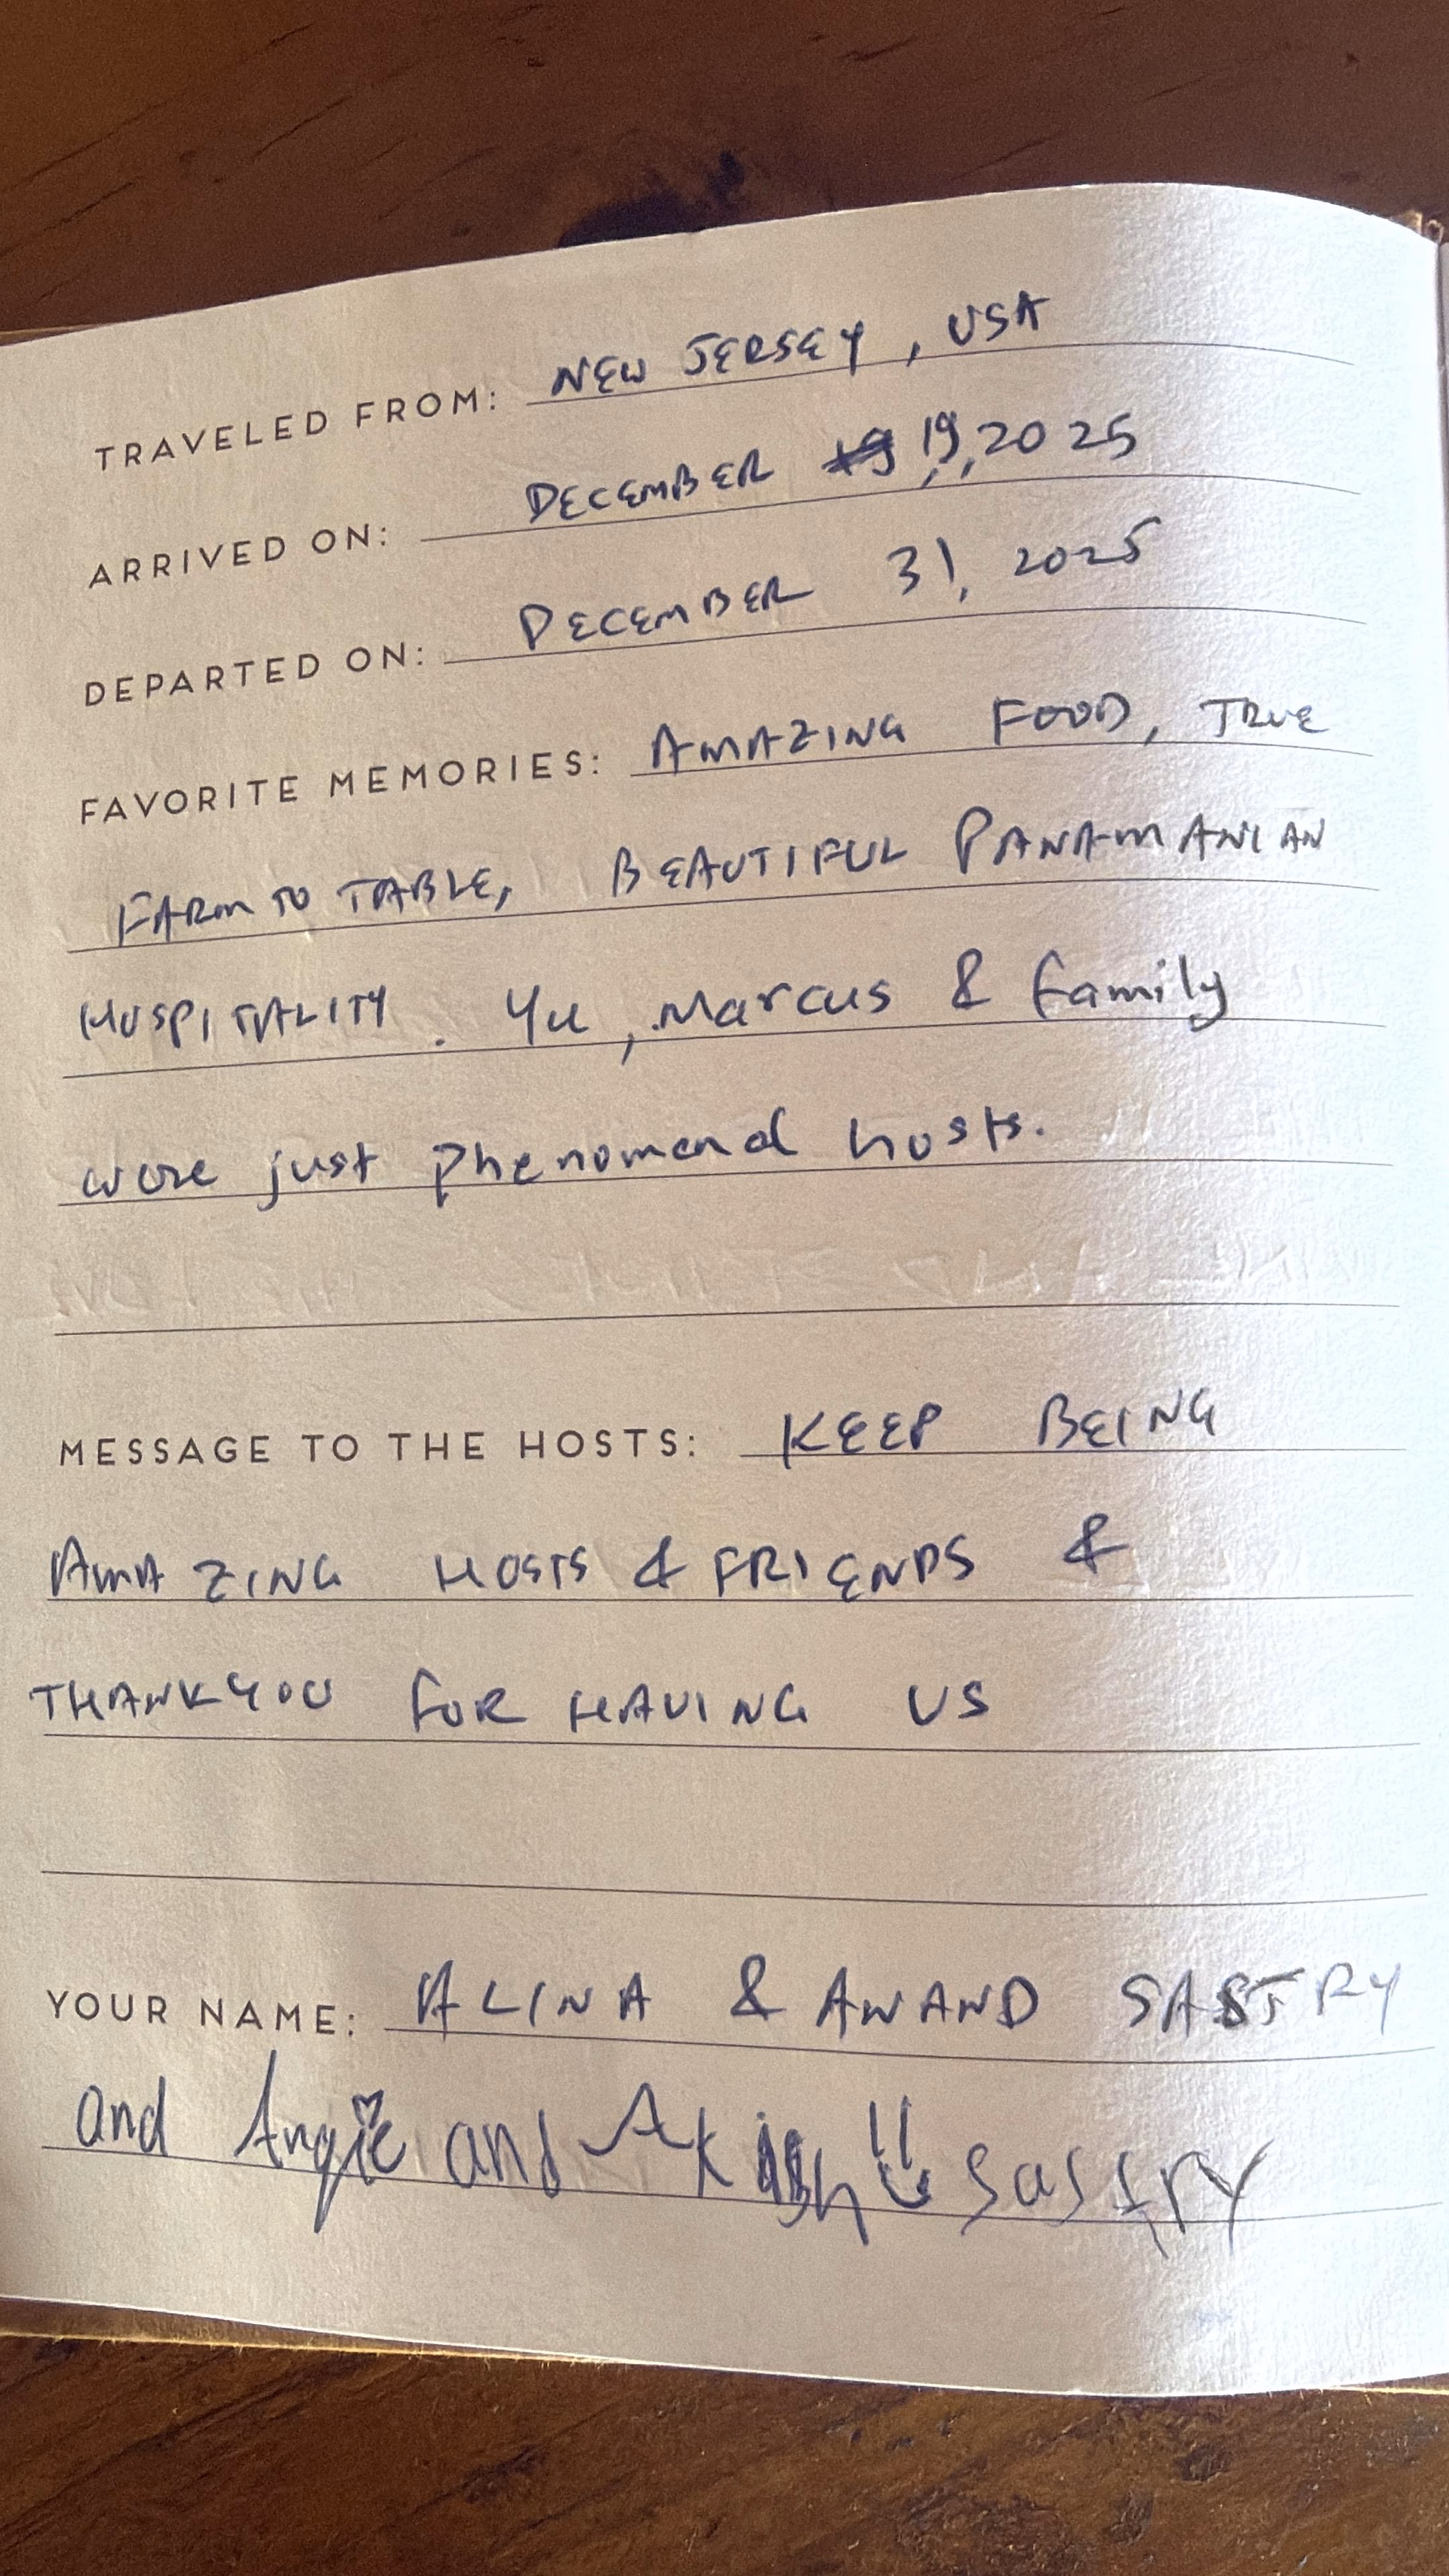 TRAVELED FROM: NEW JERSEY, USA
ARRIVED ON: DECEMBER 19, 2025
DEPARTED ON: DECEMBER 31, 2025
FAVORITE MEMORIES: AMAZING FOOD, TRUE
FARM TO TABLE, BEAUTIFUL PANAMANIAN
HOSPITALITY. Yu, Marcus & family
were just phenomenal hosts.
MESSAGE TO THE HOSTS: KEEP BEING
AMAZING HOSTS & FRIENDS &
THANKYOU FOR HAVING US
YOUR NAME: ALINA & ANAND SASTRY
and Angie and Akish!! Sastry